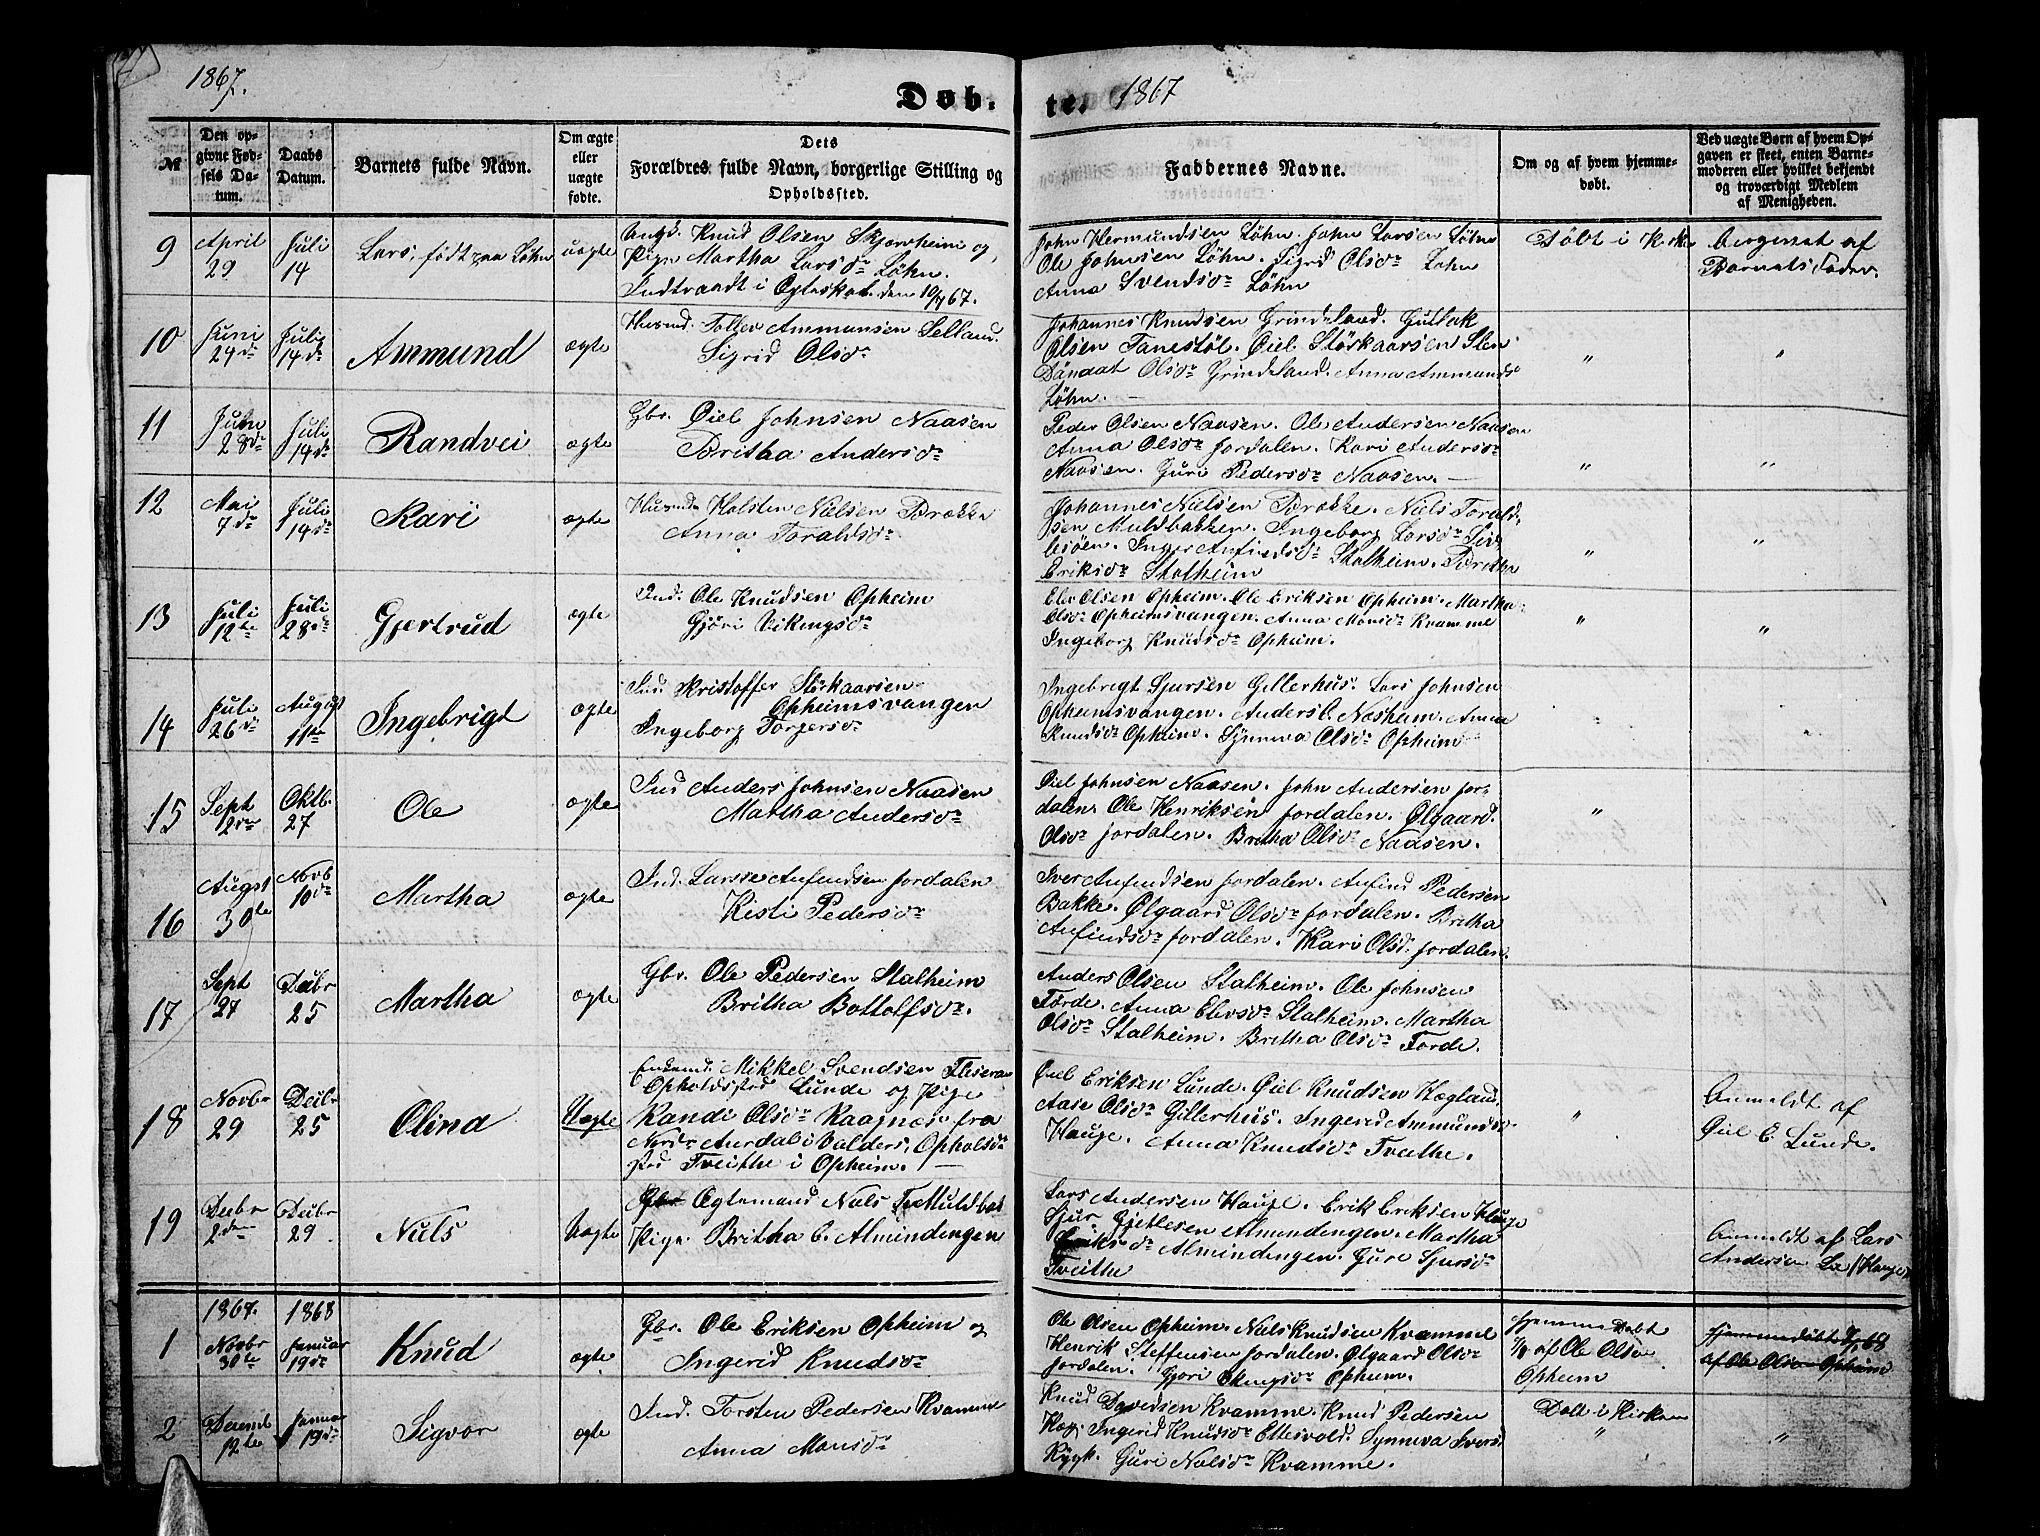 1867.
Døb-
te.
1867
№
Den op-
givne Fød-
sels Da-
tum.
Daabs
Datum.
Barnets fulde Navn.
Om ægte
eller
uægte
fødte.
Dets
Forældres fulde Navn, borgerlige Stilling og
Opholdssted.
Faddernes Navne.
Om og af hvem hjemme-
døbt.
Ved uægte Børn af hvem Op-
gaven er skeet, enten Barne-
moderen eller hvilket bekjendt
og troværdigt Medlem
af Menigheden.
9
April
29
Juli
14
Lars, født paa Løhn
uægte
Ungd. Knud Olsen Skjervheim og
Pige Martha Larsdr Løhn.
Indtraadt i Ægteskab den 10/7 67.
John Hermundsen Løhn. John Larsen Løhn
Ole Johnsen Løhn. Sigrd Olsdr Løhn
Anna Svendsdr Løhn
Döbt i Kirken
Barnets Fader.
10
Juni
24de
Juli
14de
Ammund
ægte
Husmd. Tollev Ammunsen Selland.
Sigrid Olsdr
Johannes Knudsen Grindeland. Gullak
Olsen Tanestøl. Øiel Störkaarsen Sten
Dandat Olsdr Grindeland. Anna Ammundsdr
Løhn. —
"
"
11
Juni
28de
Juli
14de
Randvei
ægte
Gbr. Øiel Johnsen Naasen
Britha Andersdr
Peder Olsen Naasen. Ole Andersen Naasen
Anna Olsdr Jordalen. Kari Andersdr
Naasen. Guri Pedersdr Naasen. —
"
"
12
Mai
7de
Juli
14de
Kari
ægte
Husmd Holsten Nielsen Brække
Anna Toraldsdr
Johannes Nielsen Brække. Niels Torald-
sen Muldbakken. Ingeborg Larsdr
Inger Anfindsdr Stalheim. Britha
Eriksdr Stalheim
"
"
13
Juli
12te
Juli
28de
Gjertrud
ægte
Ind. Ole Knudsen Opheim
Gjöri Vikingsdr
Elev Olsen Opheim. Ole Eriksen Opheim. Martha
Olsdr Opheimsvangen. Anna Monsdr Kvamme
Ingeborg Knudsdr Opheim.
"
"
14
Juli
26de
August
11te
Ingebrigt
ægte
Ind Kristoffer Störkaarsen
Opheimsvangen
Ingeborg Torgersdr
Ingebrigt Sjursen Gillerhus. Lars Johnsen
Opheimsvangen. Anders Næsheim. Anna
Knudsdr Opheim. Synneva Olsdr Opheim
15
Sept
12te
Oktb.
27
Ole
ægte
Ind Anders Johnsen Naasen
Martha Andersdr
Øiel Johnsen Naasen. John Andersen Jor-
dalen. Ole Henriksen Jordalen. Ølgaard.
Olsdr Jordalen. Britha Olsdr Naasen.
"
16
Augst
30te
Novb
10de
Martha
ægte
Ind. Lasse Anfindsen Jordalen
Kisti Pedersdr
Iver Anfindsen Jordalen. Anfind Pedersen
Bakke. Ølgaard Olsdr Jordalen. Britha
Anfindsdr Jordalen. Kari Olsd. Jordalen.
17
Sept
27
Decbr
25
Martha
ægte
Gbr. Ole Pedersen Stalheim
Britha Bottolfsdr.
Anders Olsen Stalheim. Ole Johnsen
Förde. Anna Elevsdr Stalheim. Martha
Olsdr Stalheim. Britha Olsdr Förde.
18
Novbr
29
Decbr
25
Olina
Uægte
Enkemd. Mikkel Svendsen
Opholdssted Lunde og Pige
Randi Olsdr fra
Nordr Aurdal i Valders. Opholds-
sted Tveithe i Opheim. —
Øiel Eriksen Lunde. Øiel Knudsen Hægland.
Aase Olsdr Gillerhus. Ingerid Ammundsdr
Hauge. Anna Knudsdr Tveithe.
"
Anmeldt af
Øiel E. Lunde.
19
Decbr
2den
Decbr
29
Niels
Uægte
Ægtemand Niels T. Muldbak
Pige Britha E. Almindingen
Lars Andersen Hauge. Erik Eriksen Hauge
Sjur Gjetlesen Almendingen. Martha
Eriksdr Almindingen. Gure Sjursdr
Tveithe
Anmeldt af Lars
Andersen (Hauge)
1
1867.
Novbr
30te
1868
Januar
19de
Knud
ægte
Gbr. Ole Eriksen Opheim og
Ingerid Knudsdr
Ole Olsen Opheim. Niels Knudsen Kvamme
Henrik Steffensen Jordalen. Ølgaard Olsdr
Jordalen. Gjöri Opheim.
Hjemmedøbt
af Ole Olsen
Opheim
Hjemmedöbt 68
af Ole Olsen Opheim
2
Decemb
12te
Januar
19de
Sigvor
ægte
Ind. Torsten Pedersen Kvamme
Anna Monsdr
Knud Davidsen Kvamme. Knud Pedersen
Ingerid Knudsdr Synneva Ivers
Rygh. Guri Nielsdr Kvamme.
Døbt i Kirken
"
"